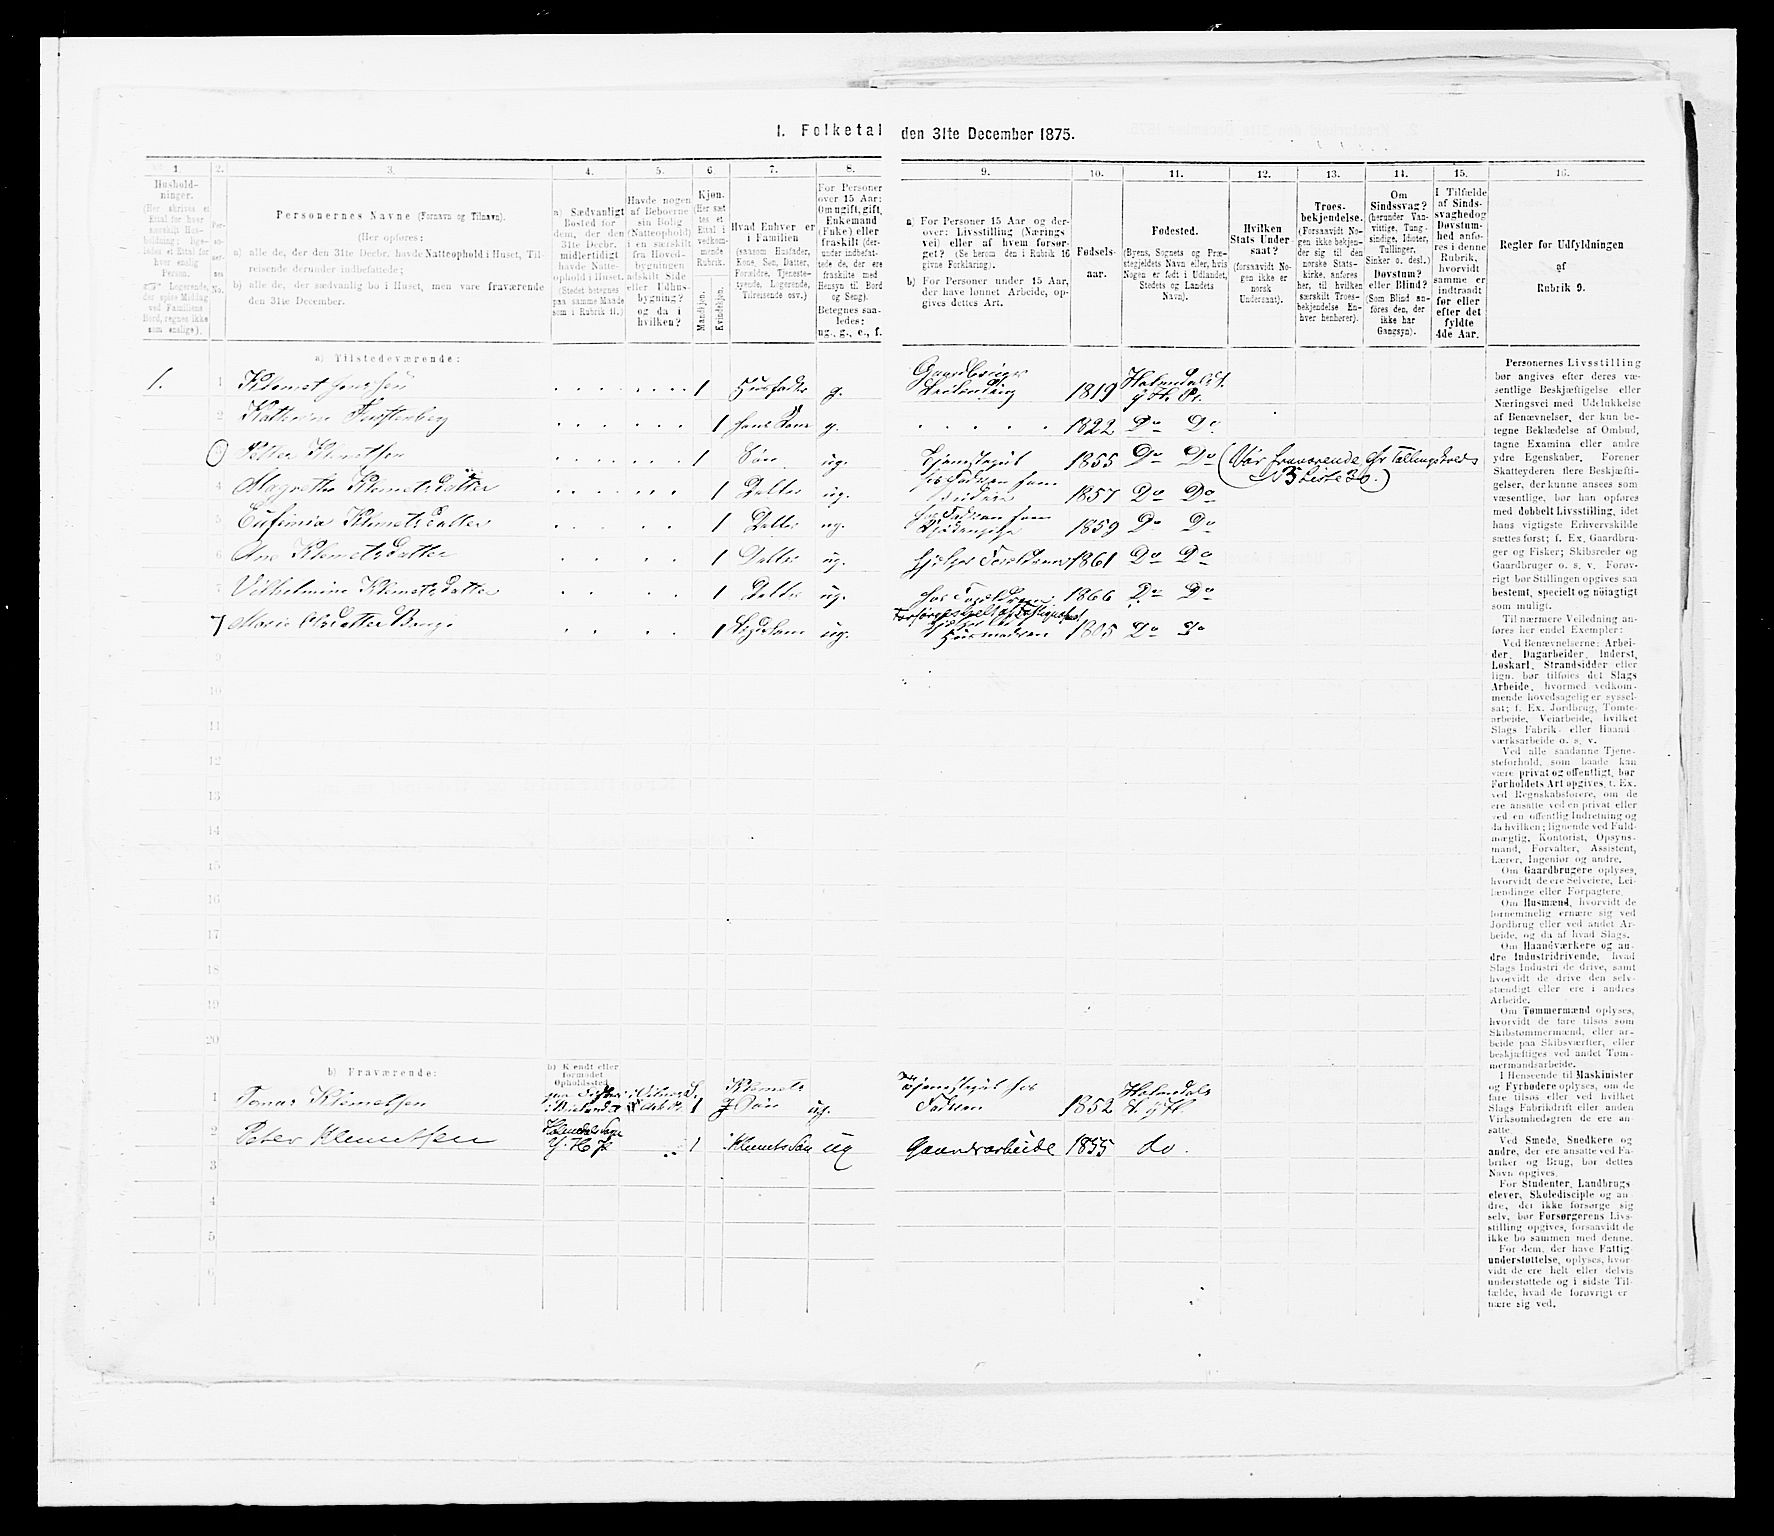 1. Folketal den 31te December 1875.
1. 2. 3. 4. 5. 6. 7. 8. 9. 10. 11. 12. 13. 14. 15. 16.
Hushold-
ninger.
(Her skrives et
Ettal for hver
særskilt Hus-
holdning; lige-
ledes et Ettal for
hver enslig
Person.
Logerende,
der spise Middag
ved Familiens
Bord, regnes ikke
som enslige).
Per-
so-
ner-
nes
No.
Personernes Navne (Fornavn og Tilnavn).
(Her opføres:
a) alle de, der den 31te Decbr. havde Natteophold i Huset, Til-
reisende derunder indbefattede;
b) alle de, der sædvanlig bo i Huset, men vare fraværende
den 31te December.
a) Sædvanligt
Bosted for
dem, der den
31te Decbr.
midlertidigt
havde Natte-
ophold i Huset.
(Stedet betegnes
paa samme Maade
som i Rubrik 11.)
Havde nogen
af Beboerne
sin Bolig
(Natteophold)
i en særskilt
fra Hoved-
bygningen
adskilt Side
eller Udhus-
bygning?
og da i
hvilken?
Kjøn.
(Her sæt-
tes et
Ettal i
vedkom-
mende
Rubrik.
Mandkjøn.
Kvindekjøn.
Hvad Enhver er
i Familien
(saasom Husfader,
Kone, Søn, Datter,
Forældre, Tjeneste-
tyende, Logerende,
Tilreisende osv.)
For Personer
over 15 Aar:
Om ugift, gift,
Enkemand
(Enke) eller
fraskilt (der-
under indbefat-
tede de, der ere
fraskilte med
Hensyn til Bord
og Seng).
Betegnes saa-
ledes:
ug., g., e., f.
a) For Personer 15 Aar og der-
over: Livsstilling (Nærings
vei) eller af hvem forsør-
get? (Se herom den i Rubrik 16
givne Forklaring).
b) For Personer under 15 Aar,
der have lønnet Arbeide, op-
gives dettes Art.
Fødsels-
aar.
Fødested.
(Byens, Sognets og Præ-
stegjeldets Navn eller, hvis
Nogen er født i Udlandet,
Stedets og Landets
Navn).
Hvilken
Stats Under
saat?
(forsaavidt No-
gen ikke er
norsk
Undersaat).
Troes-
bekjendelse.
(Forsaavidt No-
gen ikke bekjen-
der sig til den
norske Stats-
kirke, anføres
her, til hvilken
særskilt Troes-
bekjendelse En-
hver henhører).
Om
Sindssvag?
(herunder Van-
vittige, Tung-
sindige, Idioter,
Tullinger,
Sinker o. desl.)
Døvstum?
eller Blind?
(Som Blind an-
føres den, der
ikke har
Gangsyn).
I Tilfælde
af Sinds-
svaghedog
Døvstum-
hed anfø-
res i denne
Rubrik,
hvorvidt
samme er
indtraadt
før eller
efter det
fyldte
4de Aar.
Regler for Udfyldningen
af
Rubrik 9.
a) Tilstedeværende:
1. 1 Klemet Jens sen 1 Husfader g. Gaardbruger 1819 Holmedals S. y H. Pr.
2 Kathrine 1 hans Kone g. 1822 Do Do
3 Peter Klemetsen 1 Søn ug. 1855 Do Do (Var fraværende Tællingskreds
3 Liste 30.)
4 Klemetsdatter 1 Datter ug. 1857 Do Do
5 Eufimia Klemetsdatter 1 Datter ug. 1859 Do Do
6 Ane Klemetsdatter 1 Datter ug. 1861 Do Do
Vilhelmine Klemetsdatter 1 Datter ug. hos Forældrene 1866 Do Do
7 1 ug. 1805 Do Do
9
10
11
12
13
14
15
16
17
18
19
20
b) Fraværende:
b) Kjendt eller
formodet
Opholdssted.
1 Klemetsen 1 Klemets Søn ug. Tjenstegut hos Fadren 1852 Holmedals S. y H.
2 Peter Klemetsen Holmedals Sogn Y. H. P 1 Klemets Søn ug Gaardsarbeide 1855 do.
3
4
5
6
Personernes Livsstilling
bør angives efter deres væ-
sentlige Beskjæftigelse eller
Næringsvei med Udelukkelse
af Benævnelser, der kun be-
tegne Beklædelse af Ombud,
tagne Examina eller andre
ydre Egenskaber. Forener
Skatteyderen flere Beskjæfti-
gelser, der kunne ansees som
væsentlige, bør han opføres
med dobbelt Livsstilling, idet
hans vigtigste Erhvervskilde
sættes først; f. Ex. Gaardbru-
ger og Fisker; Skibsreder og
Gaardbruger o. s. v. Forøv-
rigt bør Stillingen opgives saa
bestemt, specielt og nøiagtigt
som muligt.
Til nærmere Veiledning an-
føres her endel Exempler:
Ved Benævnelserne: Arbei-
der, Dagarbeider, Inderst,
Løskarl, Strandsidder eller
lign. bør tilføies det Slags
Arbeide, hvormed vedkom-
mende hovedsagelig er syssel-
sat; f. Ex. Jordbrug, Tomte-
arbeide, Veiarbeide, hvilket
Slags Fabrik- eller Haand-
værksarbeide o. s. v.
Ved alle saadanne Tjene-
steforhold, som baade kan
være privat og offentligt, bør
Forholdets Art opgives, f. Ex.
ved Regnskabsførere, om de
ere ansatte ved en privat eller
ved en offentlig Indretning og
da hvilken; lignende ved Fuld-
mægtig, Kontorist, Opsyns-
mand, Forvalter, Assistent,
Lærer, Ingeniør og andre.
Om Gaardbrugere oplyses,
hvorvidt de ere Selveiere, Lei-
lændinge eller Forpagtere.
Om Husmænd, hvorvidt de
fornemmelig ernære sig ved
Jordbrug eller ved andet Ar-
beide, og da af hvad Slags.
Om Haandværkere og an-
dre Industridrivende, hvad
Slags Industri de drive, samt
hvorvidt de drive den selv-
stændigt eller ere i andres
Arbeide.
Om Tømmermænd oplyses,
hvorvidt de fare tilsøs som
Skibstømmermænd, eller ar-
beide paa Skibsværfter, eller
beskjæftiges ved andet Tøm-
mermandsarbeide.
I Henseende til Maskinister
og Fyrbødere oplyses, om de
fare tilsøs eller ved hvilket
Slags Fabrikdrift eller anden
Virksomhedsgren de ere an-
satte.
Ved Smede, Snedkere og
andre, der ere ansatte ved Fa-
briker og Brug, bør dettes
Navn opgives.
For Studenter, Landbrugs-
elever, Skoledisciple og an-
dre, der ikke forsørge sig
selv, bør Forsørgerens Livs-
stilling opgives, forsaavidt de
ikke bo sammen med denne.
For dem, der have Fattig-
understøttelse, oplyses, hvor-
vidt de ere helt eller delvis
understøttede og i sidste Til-
fælde, hvad de forøvrigt er-
nære sig ved.